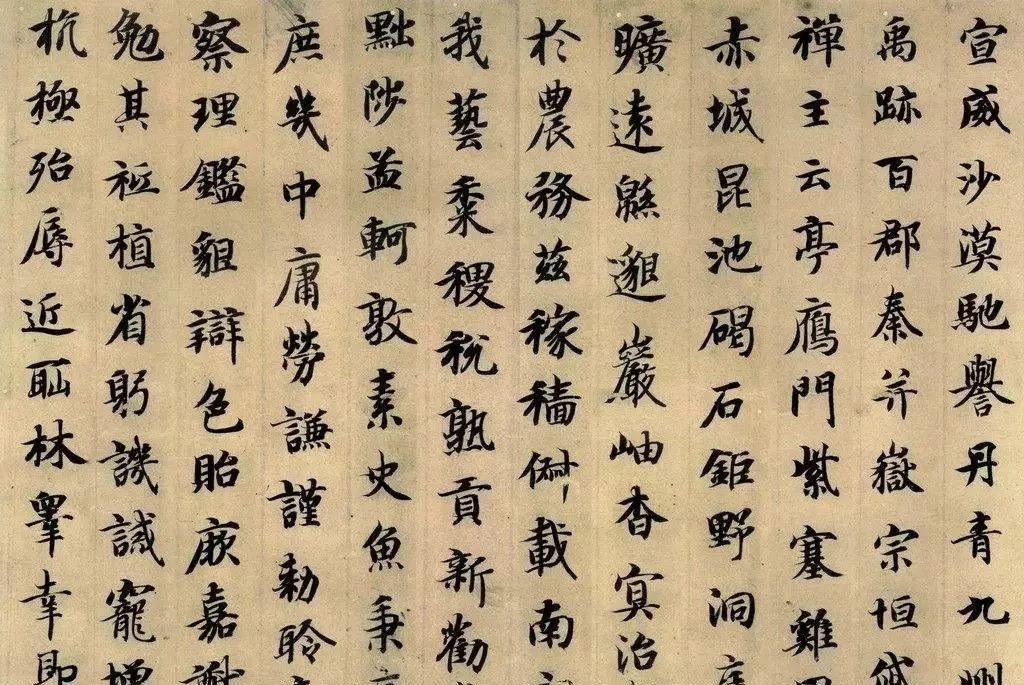 宣威沙漠馳譽丹青九
禹跡百郡秦并嶽宗恒岱
禪主云亭鴈門紫塞雞
赤城昆池碣石鉅野洞
曠遠緜邈巖岫杳冥治
於農務茲稼穡俶載南
我藝黍稷稅熟貢新勸
黜陟孟軻敦素史魚秉
庶幾中庸勞謙謹勑聆
察理鑑貌辯色貽厥嘉猷
勉其祗植省躬譏誡寵增
杭極殆辱近耻林睪幸即